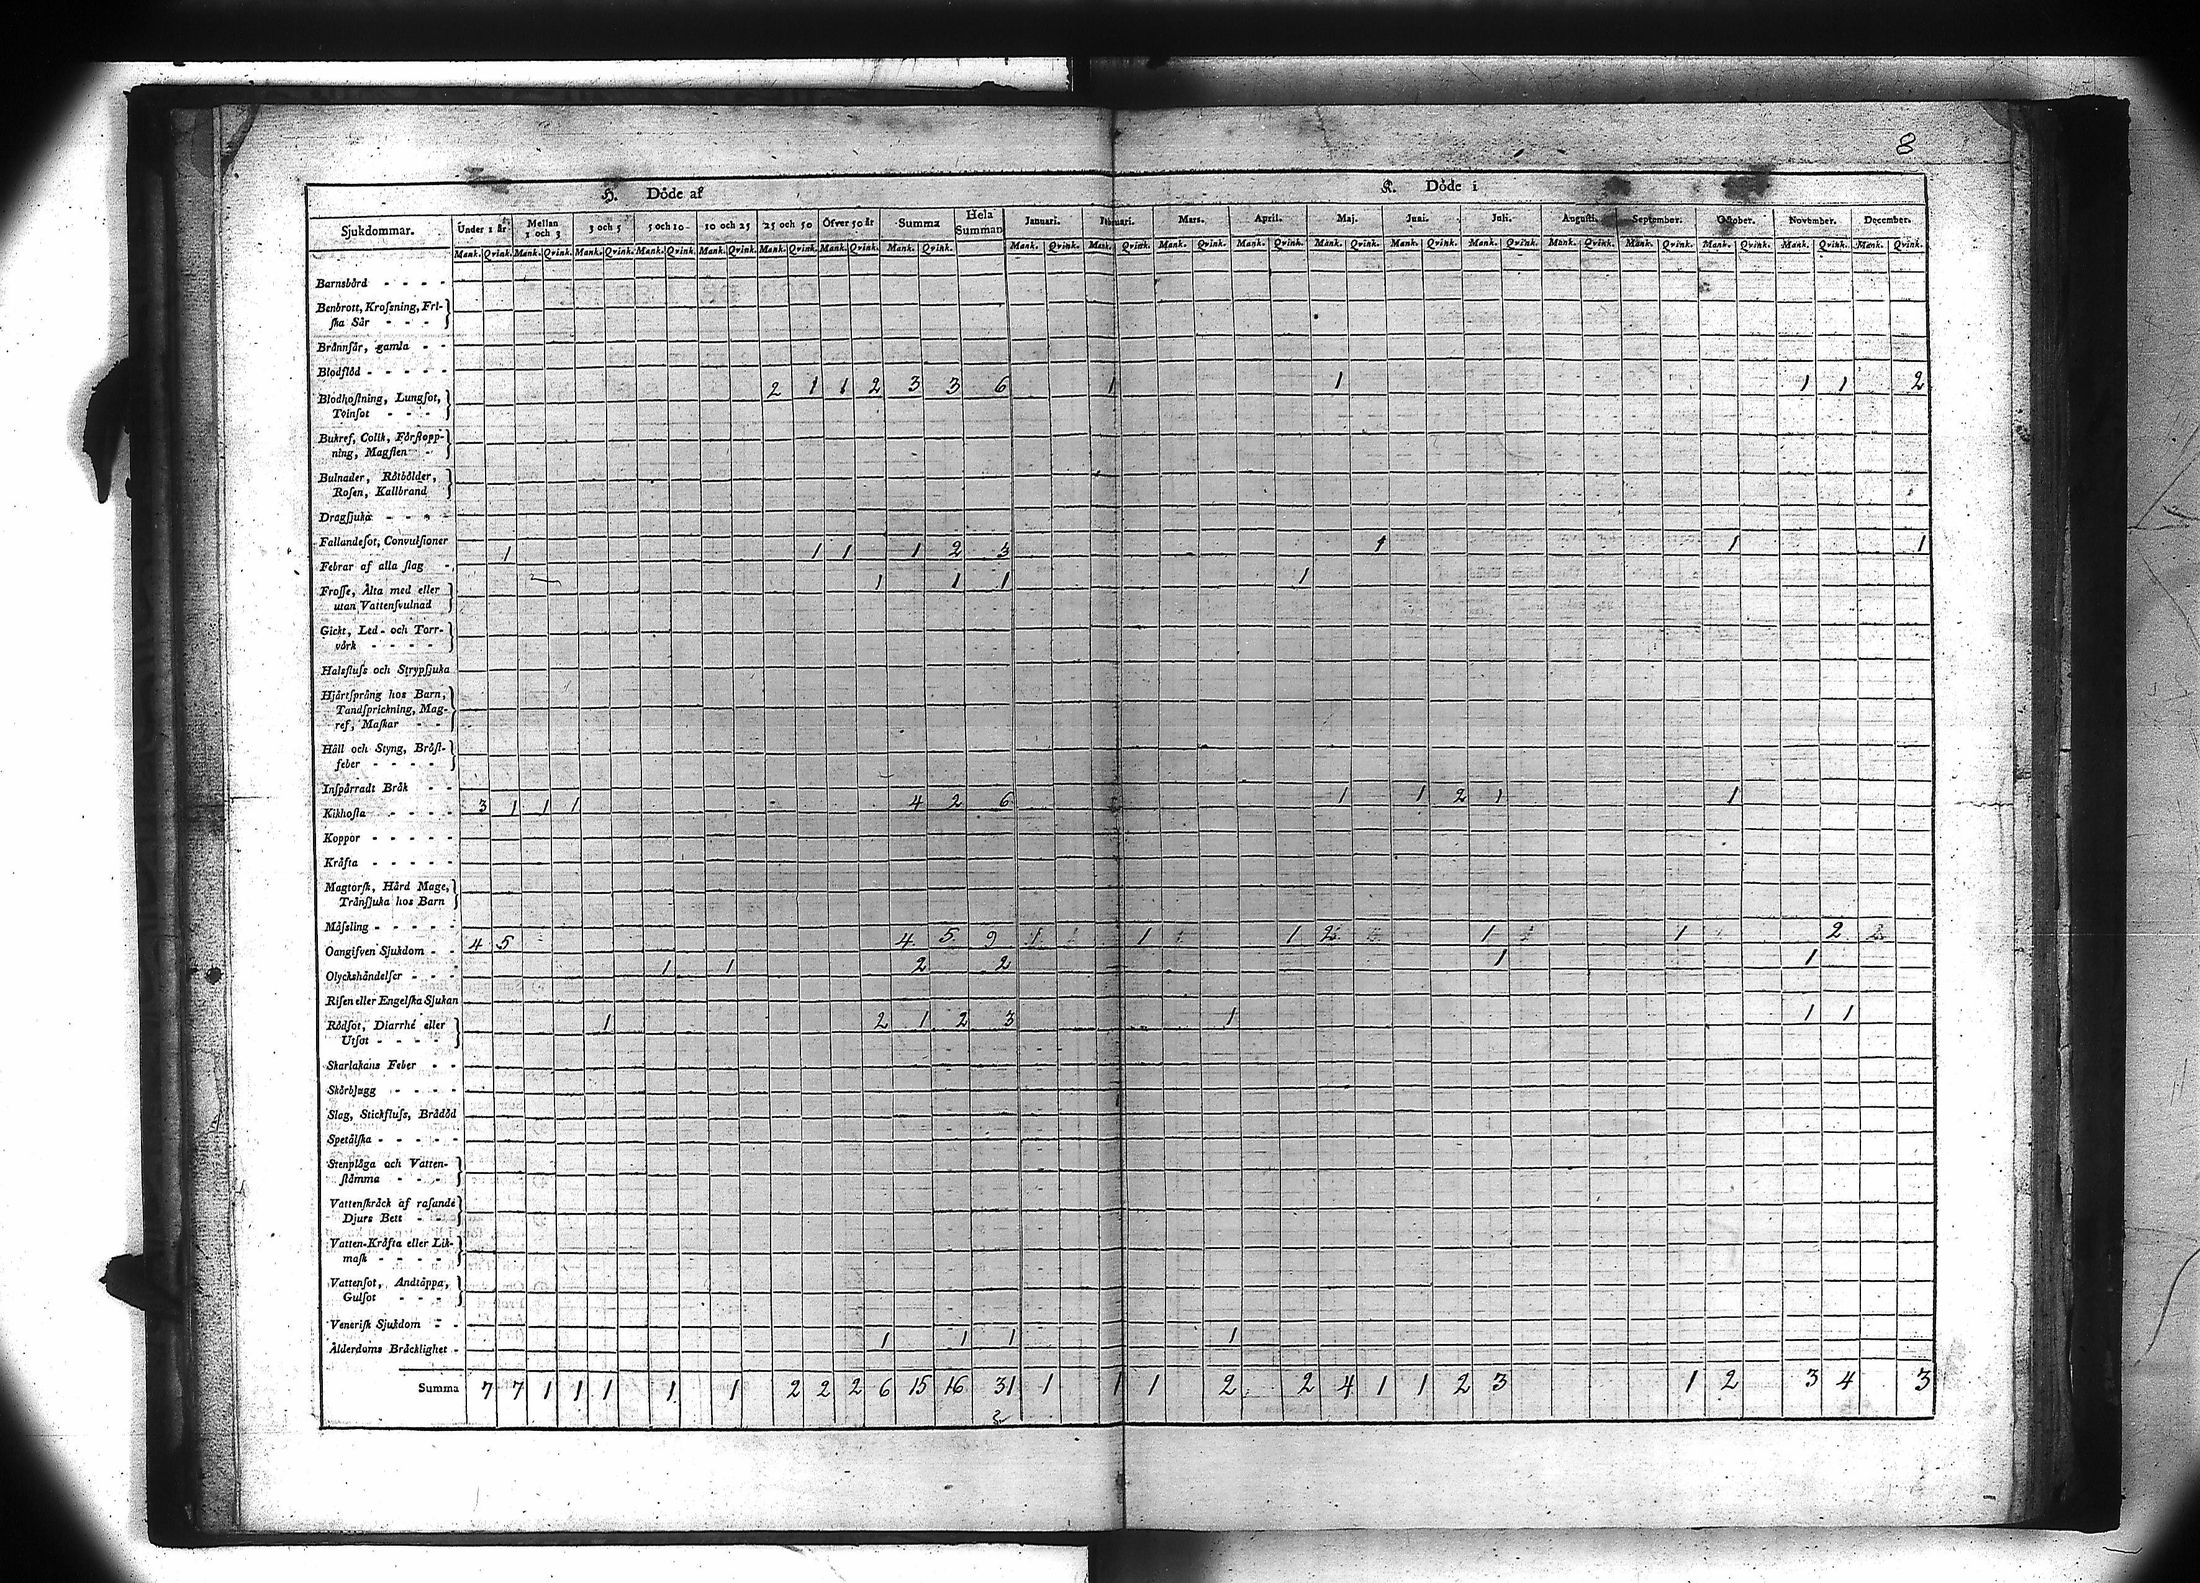 8
H. Döde af K. Döde i
Sjukdommar. Under 1 år Mellan 1 och 3 3 och 5 5 och 10 10 och 25 25 och 50 Öfver 50 år Summa Hela Summan Januari. Februari. Mars. April. Maj. Juni. Juli. Augusti. September. Oktober. November. December.
Mank. Qvink. Mank. Qvink. Mank. Qvink. Mank. Qvink. Mank. Qvink. Mank. Qvink. Mank. Qvink. Mank. Qvink. Mank. Qvink. Mank. Qvink. Mank. Qvink. Mank. Qvink. Mank. Qvink. Mank. Qvink. Mank. Qvink. Mank. Qvink. Mank. Qvink. Mank. Qvink. Mank. Qvink. Mank. Qvink.
Barnsbörd - - - -
Benbrott, Krofsning, Fri-
ſka Sår - - -
Brännſår, gamla - -
Blodflöd - - - - -
2 1 1 2 3 3 6 1 1 1 1 2
Blodhoſtning, Lungſot,
Tvinſot - - -
Bukref, Colik, Förſtopp-
ning, Magſten - -
Bulnader, Rötbölder,
Roſen, Kallbrand
Dragſjuka - - - -
Fallandeſot, Convulſioner
1 1 1 1 2 3 1 1 1
Febrar af alla ſlag -
1 1 1 1
Froſſe, Älta med eller
utan Vattenſvulnad
Gickt, Led- och Torr-
värk - - - -
Halsfluſs och Strypſjuka
Hjärtſprång hos Barn,
Tandſprickning, Mag-
ref, Maſkar - -
Håll och Styng, Bröſt-
feber - - - -
Inſpärradt Bråk - -
3 1 1 1 4 2 6 1 1 2 1 1
Kikhoſta - - - -
Koppor - - - - -
Kräfta - - - - -
Magtorſk, Hård Mage,
Tränſjuka hos Barn
Måſsling - - - - -
4 5 4 5 9 1 1 1 2 1 1 2
Oangifven Sjukdom - -
1 1 2 2 1 1
Olyckshändelſer - - -
Riſen eller Engelſka Sjukan
1 2 1 2 3 1 1 1
Rödſot, Diarrhé eller
Utſot - - - -
Skarlakans Feber - -
Skörbjugg - - - -
Slag, Stickfluſs, Brådöd
Spetälſka - - - - -
Stenplåga och Vatten-
ſtämma - - -
Vattenſkräck af raſande
Djurs Bett - -
Vatten-Kräfta eller Lik-
maſk - - - -
Vattenſot, Andtäppa,
Gulſot - - -
Veneriſk Sjukdom - -
1 1 1 1
Ålderdoms Bräcklighet -
Summa 7 7 1 1 1 1 1 2 2 2 6 15 16 31 1 1 1 2 2 4 1 1 2 3 1 2 3 4 3